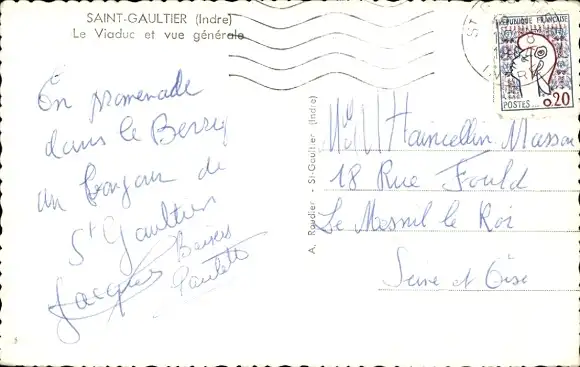 SAINT-GAULTIER (Indre)
Le Viaduc et vue générale
RÉPUBLIQUE FRANÇAISE
POSTES
0.20
En promenade
dans le Berry
un bonjour de
St Gaultier
Jacques
Baisers
Paulette
A. Raudier - St-Gaultier (Indre)
Masson
18 Rue Fould
Le Mesnil le Roi
Seine et Oise